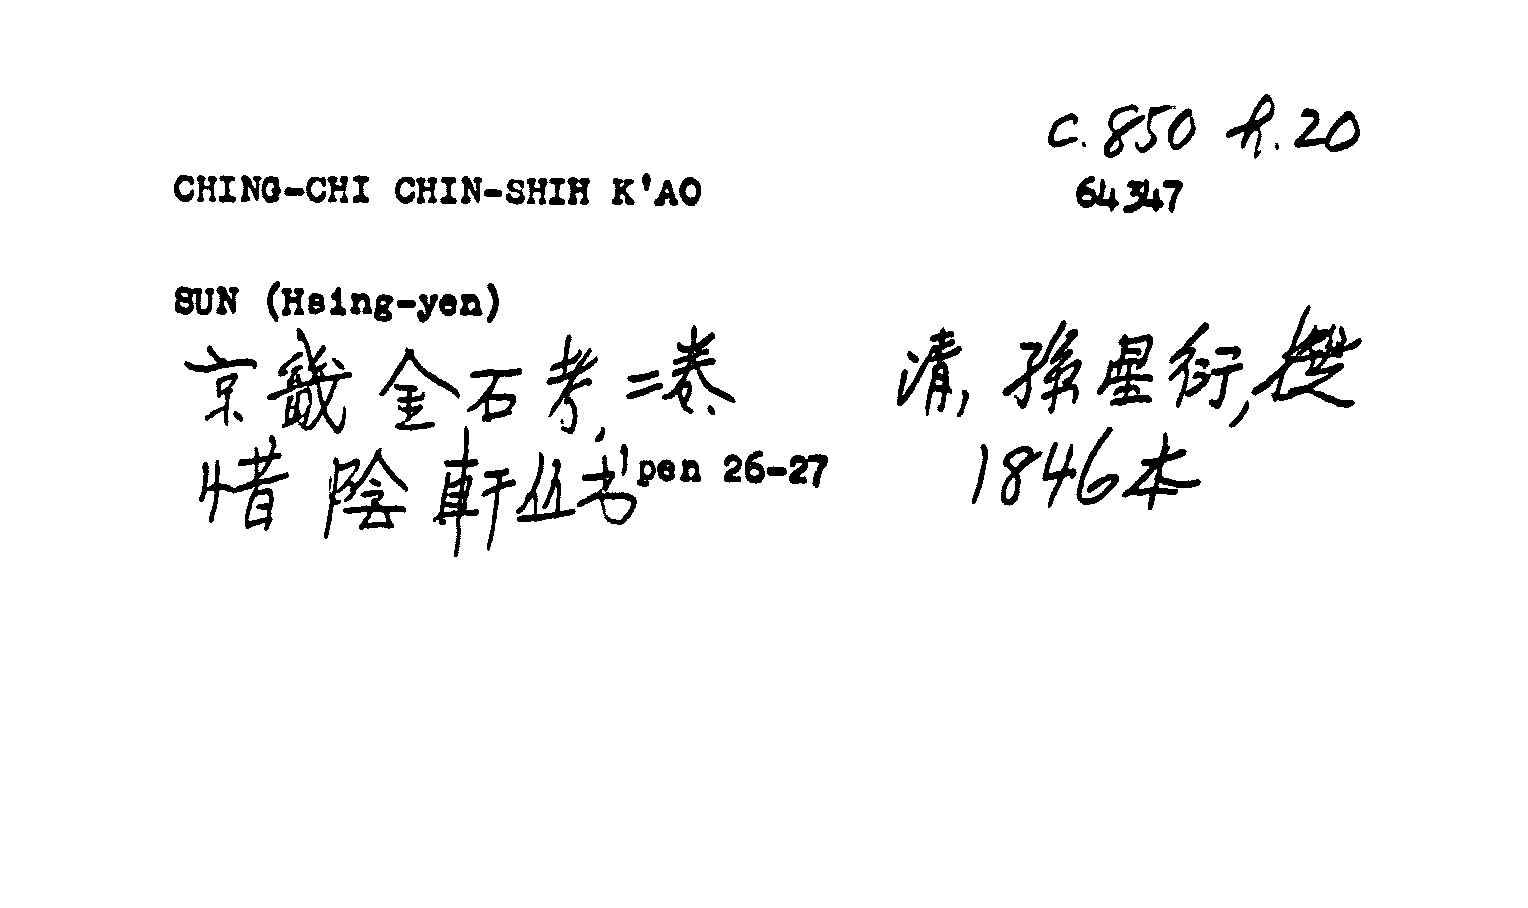 c.850 h.20
CHING-CHI CHIN-SHIH K'AO 64347
SUN (Hsing-yen)
京畿金石考,二卷. 清,孫星衍,撰
惜陰軒丛书' pen 26-27 1846本